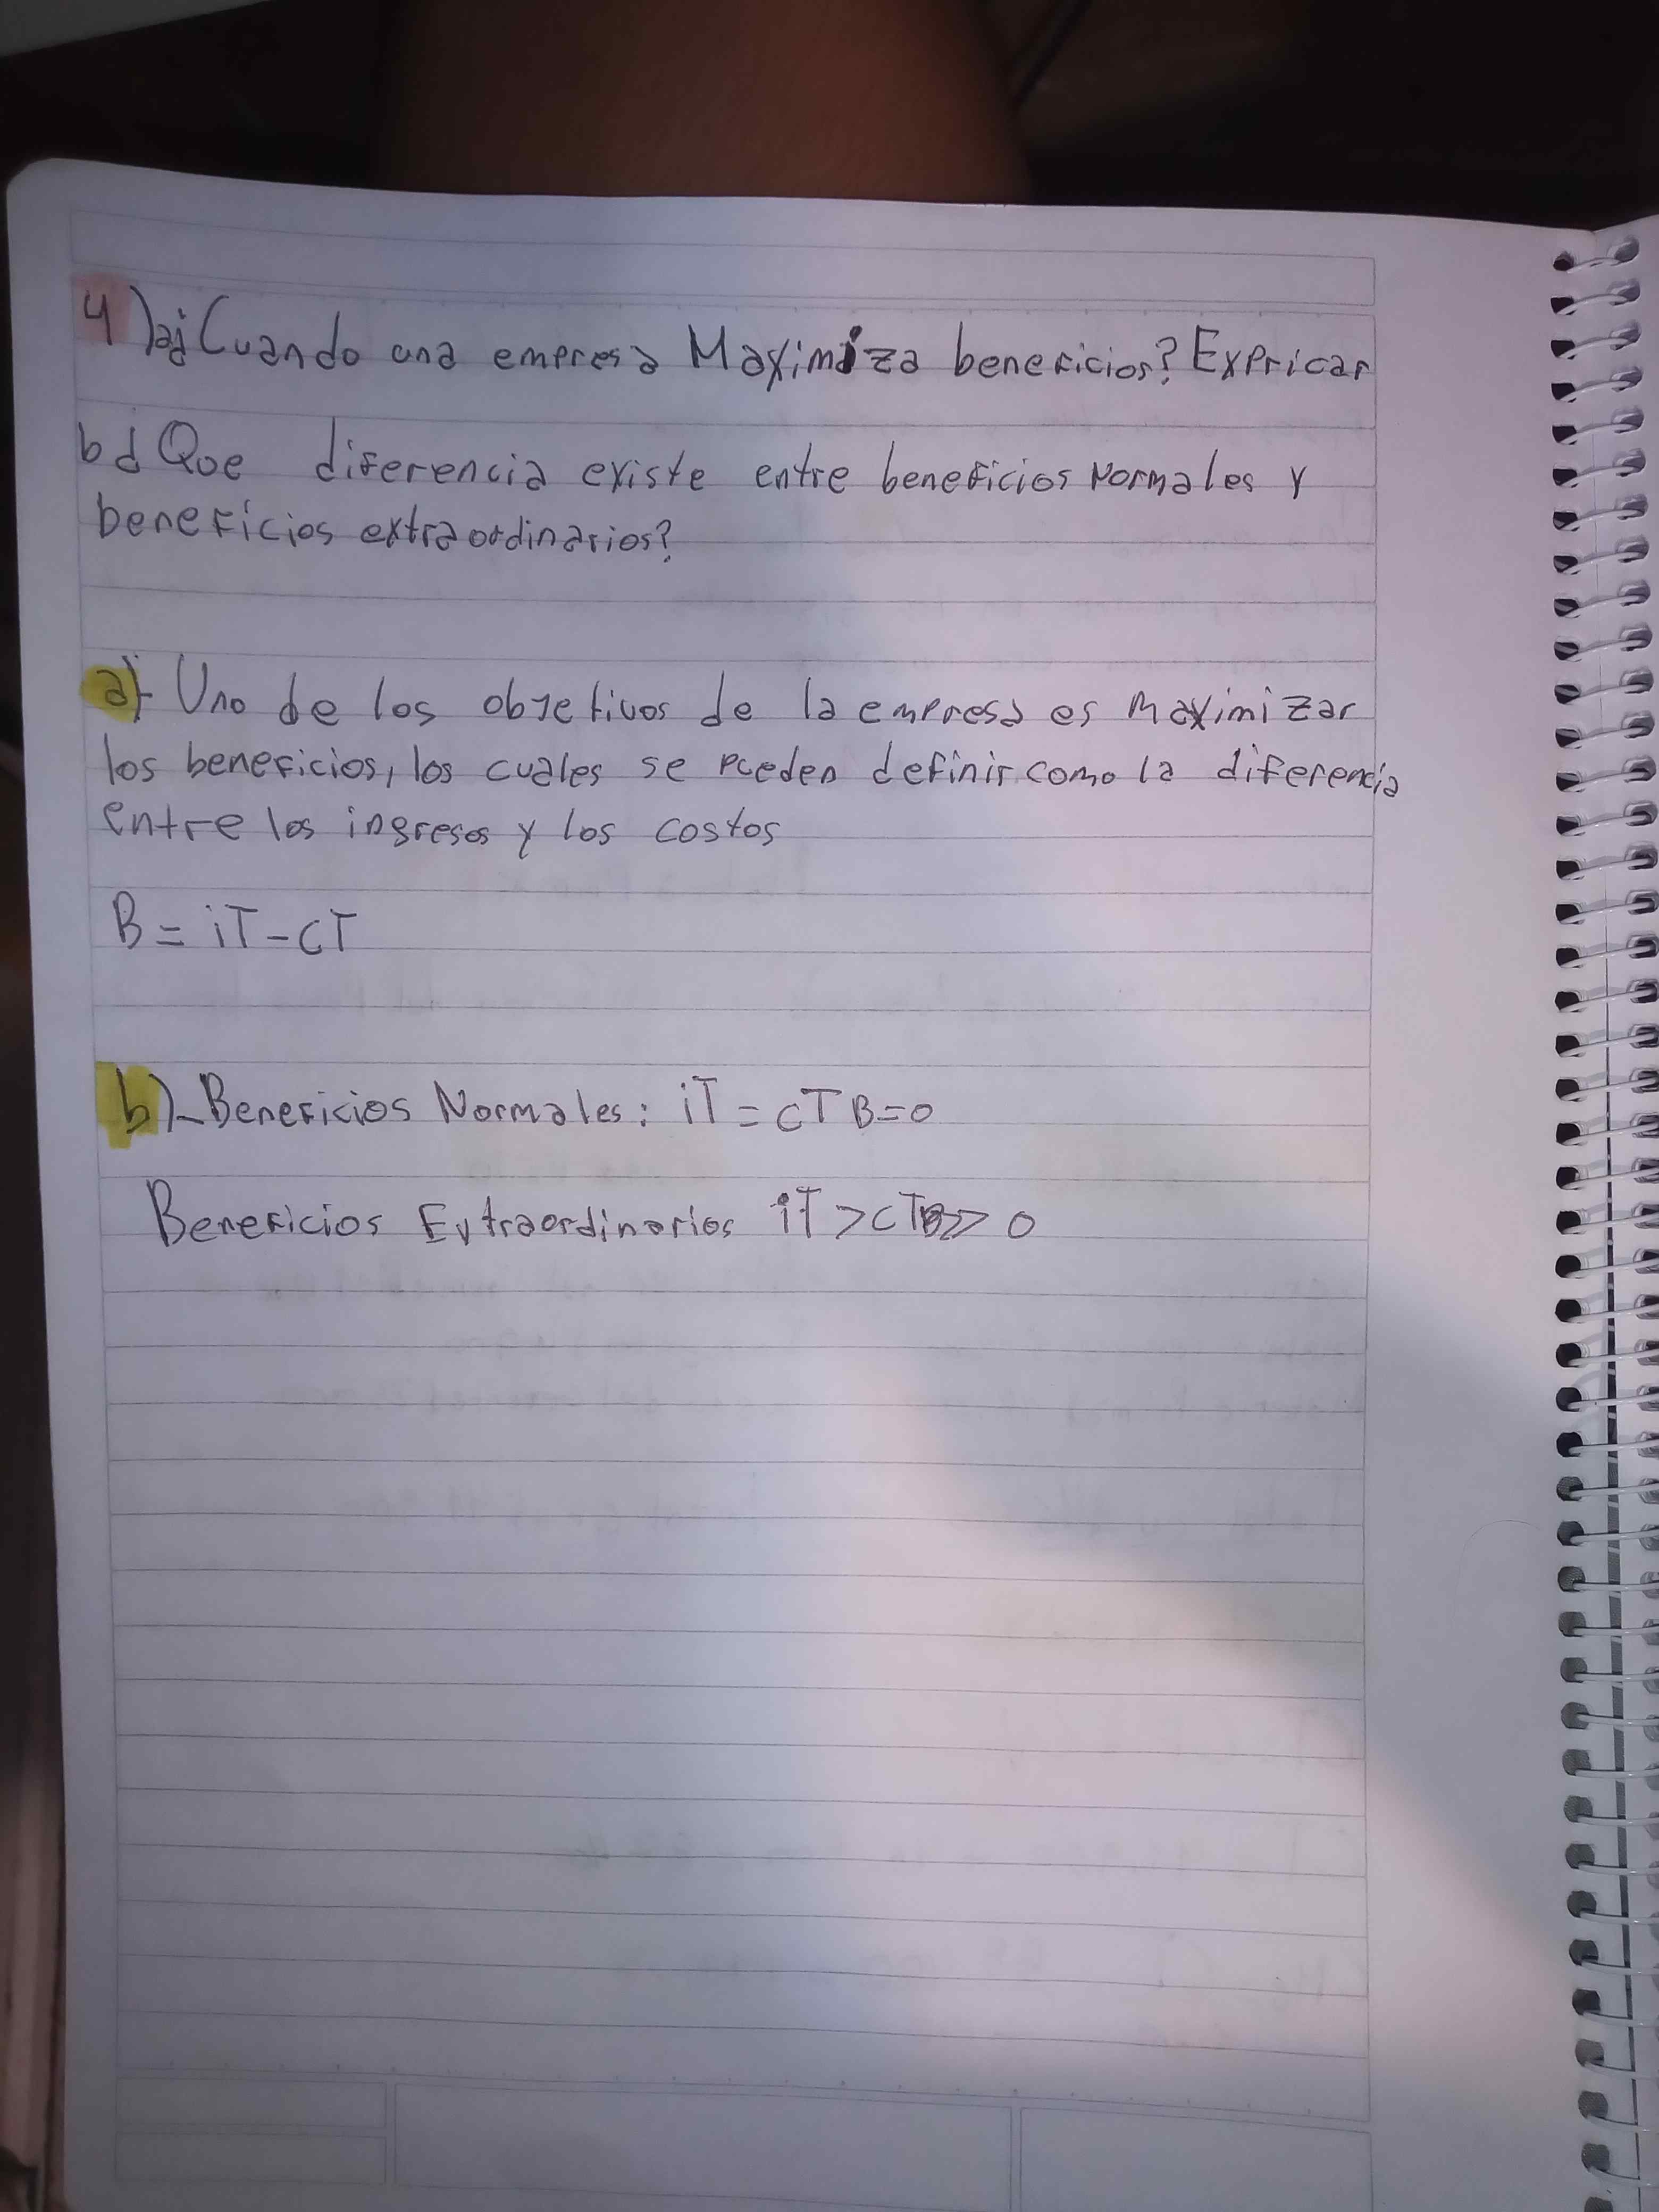 4)a¿Cuando una empresa Maximiza beneficios? Expricar
b ¿Que diferencia existe entre beneficios Normales y
beneficios extraordinarios?
a)- Uno de los objetivos de la empresa es maximizar
los beneficios, los cuales se pueden definir como la diferencia
entre los ingresos y los costos
B = iT - CT
b)- Beneficios Normales: iT = CT B=0
Beneficios Extraordinarios iT > CT B> 0